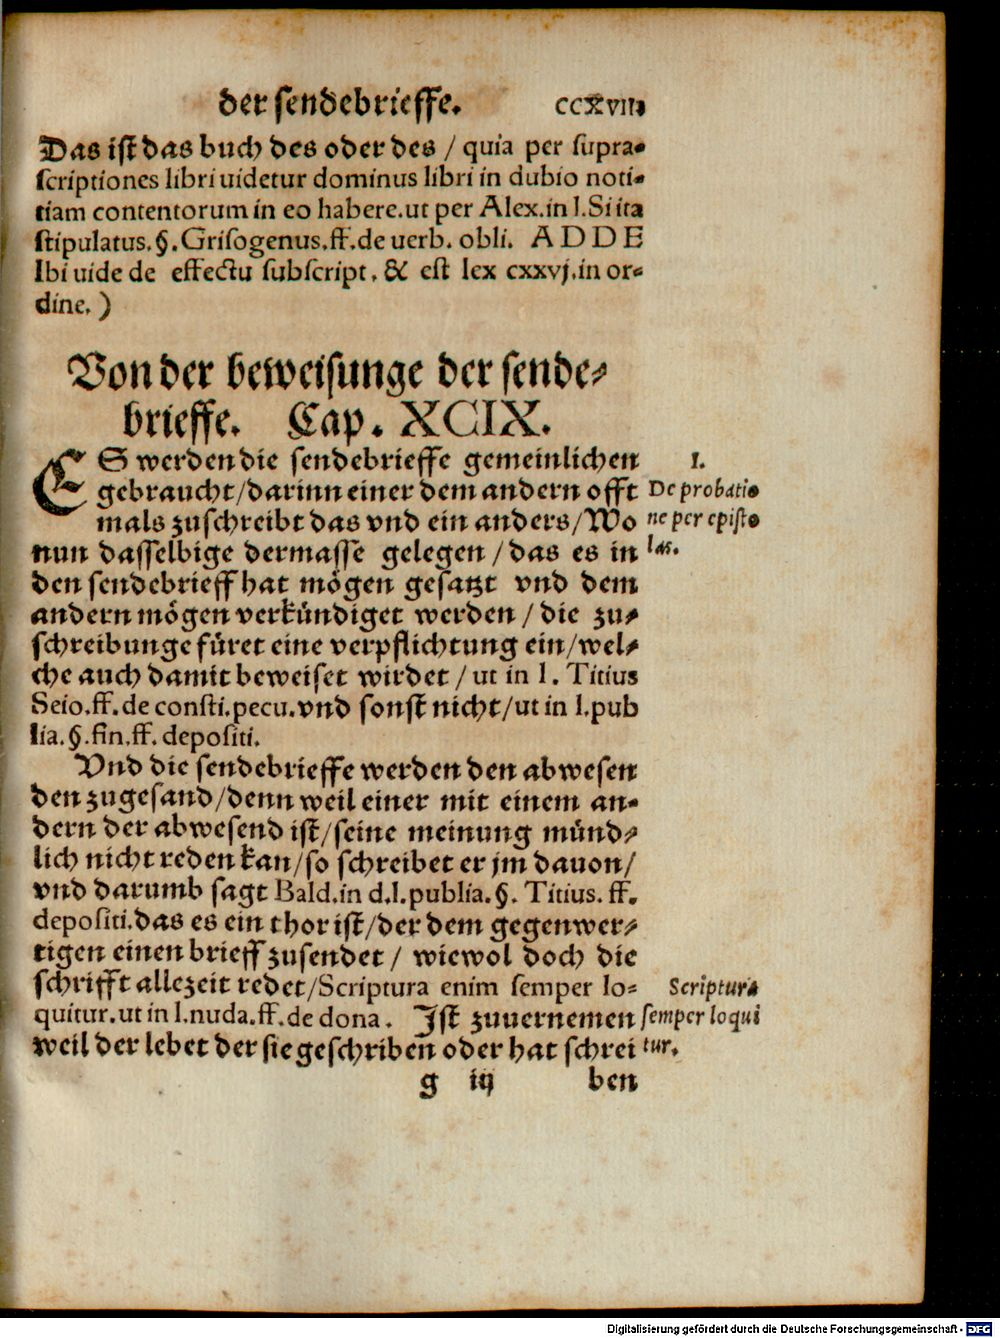 der sendebrieffe. CCXVII.
Das ist das buch des oder des / quia per supra-
scriptiones libri uidetur dominus libri in dubio noti-
tiam contentorum in eo habere. ut per Alex. in l. Si ita
stipulatus. §. Grisogenus. ff. de uerb. obli. ADDE
Ibi uide de effectu subscript. & est lex cxxvj. in or-
dine. )
Von der beweisunge der sende-
brieffe. Cap. XCIX.
ES werden die sendebrieffe gemeinlichen
gebraucht/darinn einer dem andern offt
mals zuschreibt das vnd ein anders/Wo
nun dasselbige dermasse gelegen/das es in
den sendebrieff hat mögen gesatzt vnd dem
andern mögen verkündiget werden / die zu-
schreibunge füret eine verpflichtung ein/wel-
che auch damit beweiset wirdet / ut in l. Titius
Seio. ff. de consti. pecu. vnd sonst nicht/ut in l. pub
lia. §. fin. ff. depositi.
I.
De probati-
ne per episto-
las.
Vnd die sendebrieffe werden den abwesen
den zugesand/denn weil einer mit einem an-
dern der abwesend ist/seine meinung münd-
lich nicht reden kan/so schreibet er jm dauon/
vnd darumb sagt Bald. in d. l. publia. §. Titius. ff.
depositi. das es ein thor ist/der dem gegenwer-
tigen einen brieff zusendet / wiewol doch die
schrifft allezeit redet/Scriptura enim semper lo-
quitur. ut in l. nuda. ff. de dona. Ist zuuernemen
weil der lebet der sie geschribē oder hat schrei
Scriptura
semper loqui
tur.
g iij ben
Digitalisierung gefördert durch die Deutsche Forschungsgemeinschaft - DFG